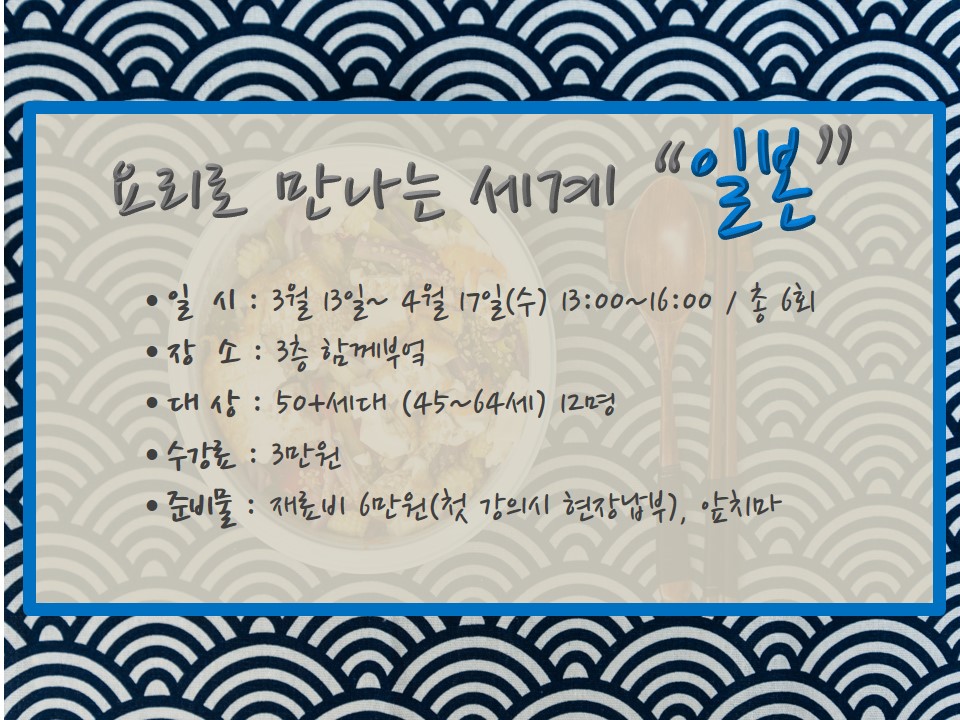 요리로 만나는 세계 “일본”
• 일 시 : 3월 13일~ 4월 17일(수) 13:00~16:00 / 총 6회
• 장 소 : 3층 함께부엌
• 대 상 : 50+세대 (45~64세) 12명
• 수강료 : 3만원
• 준비물 : 재료비 6만원(첫 강의시 현장납부), 앞치마